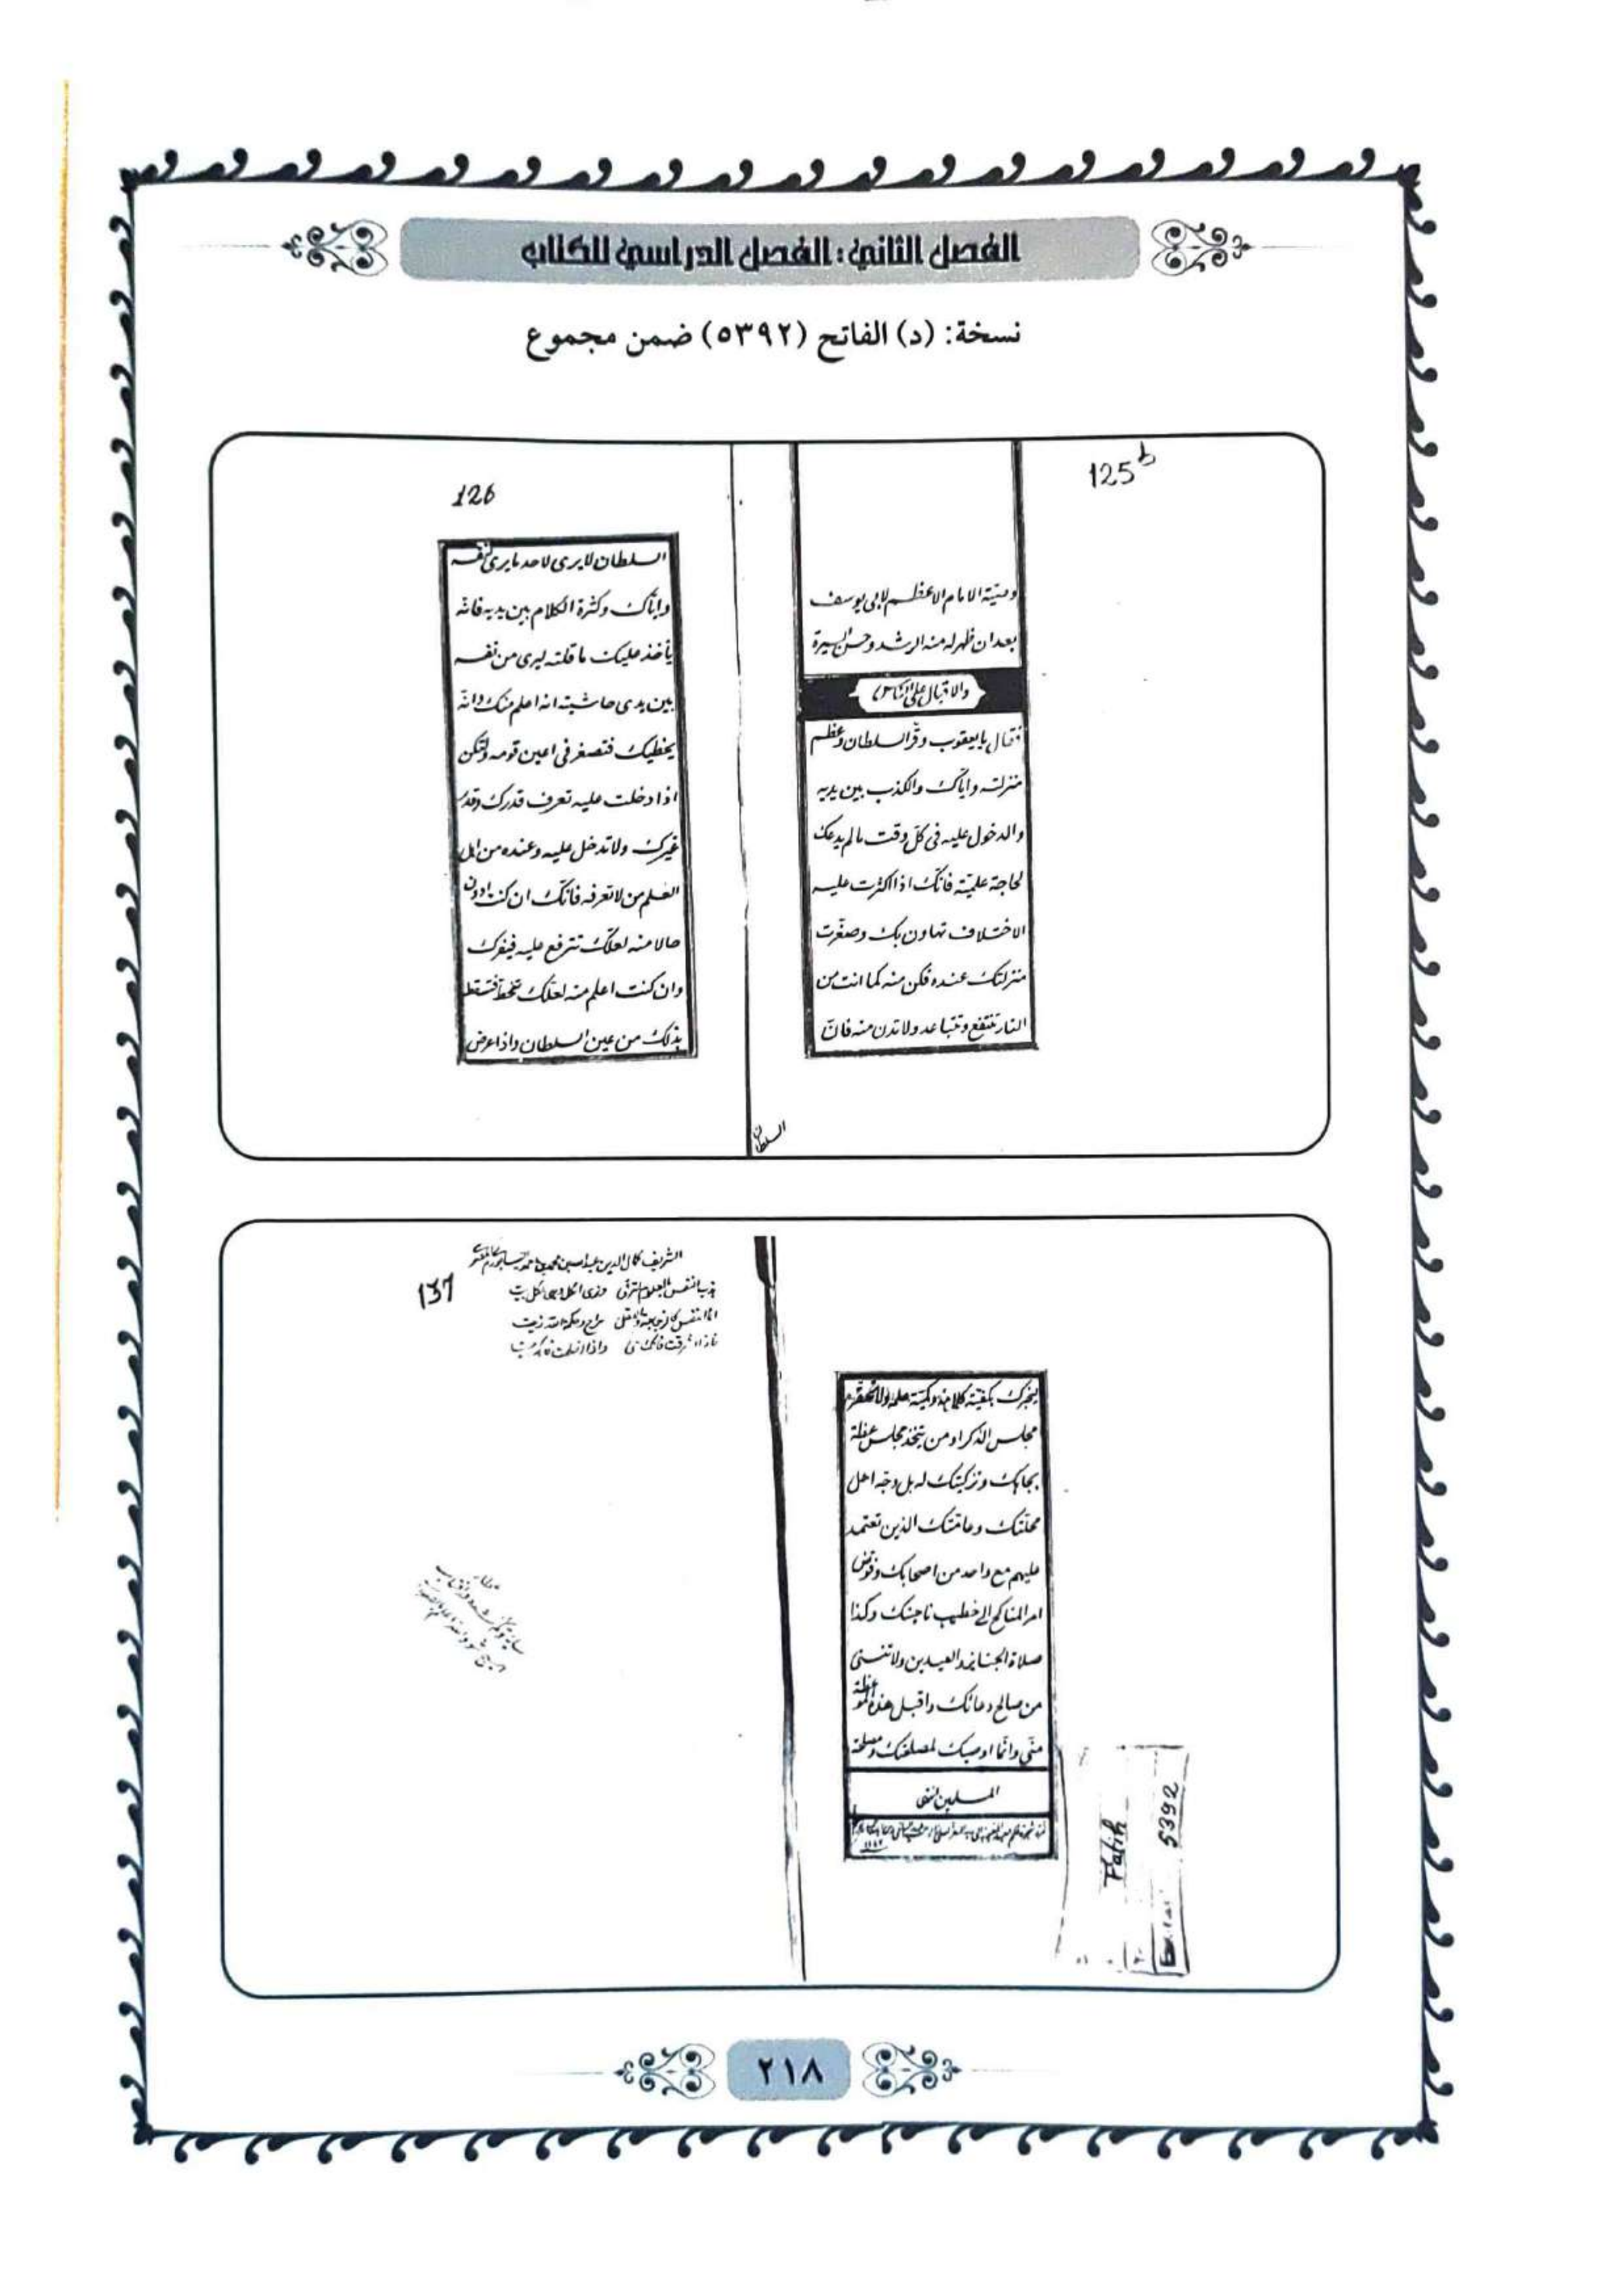 الفصل الثاني: الفصل الدراسي للكتاب
نسخة: (د) الفاتح (٥٣٩٢) ضمن مجموع
125b
وصيّة الامام الاعظم لابى يوسف
بعد ان ظهر له منه الرشد وحسن السيرة
والاقبال على الناس
فقال يا يعقوب وقّر السلطان وعظم
منزلته واياك والكذب بين يديه
والدخول عليه فى كلّ وقت مالم يدعك
لحاجة علميّة فانّك اذا اكثرت عليه
الاختلاف تهاون بك وصغرت
منزلتك عنده فكن منه كما انت من
النار تنتفع وتتباعد ولا تدن منه فانّ
السلطان
126
السلطان لا يرى لاحد ما يرى لنفسه
واياك وكثرة الكلام بين يديه فانّه
يأخذ عليك ما قلته ليرى من نفسه
بين يدى حاشيته انه اعلم منك وانّه
يخطيك فتصغر فى اعين قومه ولتكن
اذا دخلت عليه تعرف قدرك وقدر
غيرك ولا تدخل عليه وعنده من اهل
العلم من لا تعرفه فانّك ان كنت ادون
حالا منه لعلّك تترفع عليه فيضرك
وان كنت اعلم منه لعلّك تنحط فتسقط
بذلك من عين السلطان واذا عرض
يخبرك بكيفيّة كلامه وكميّة علمه ولا تحضر
مجلس الذكر او من يتخذ مجلس عظة
بجاهك وتزكيتك له بل وجّه اهل
محلّتك وعامّتك الذين تعتمد
عليهم مع واحد من اصحابك وفوّض
امر المناكح الى خطيب ناحيتك وكذا
صلاة الجنايز والعيدين ولا تنسنى
من صالح دعائك واقبل هذه الموعظة
منّى وانّما اوصيك لمصلحتك ومصلحة
المسلمين انتهى
137
Fatih
5392
٢١٨